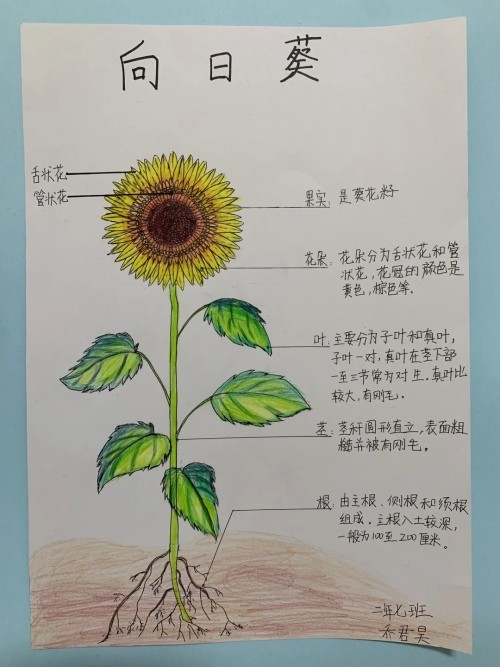 向日葵
舌状花
管状花
果实：是葵花籽
花朵：花朵分为舌状花和管
状花，花冠的颜色是
黄色，棕色等。
叶：主要分为子叶和真叶，
子叶一对，真叶在茎下部
一至三节常为对生，真叶比
较大，有刚毛。
茎：茎秆圆形直立，表面粗
糙并被有刚毛。
根：由主根、侧根和须根
组成。主根入土较深，
一般为100至200厘米。
二年七班
乔君昊